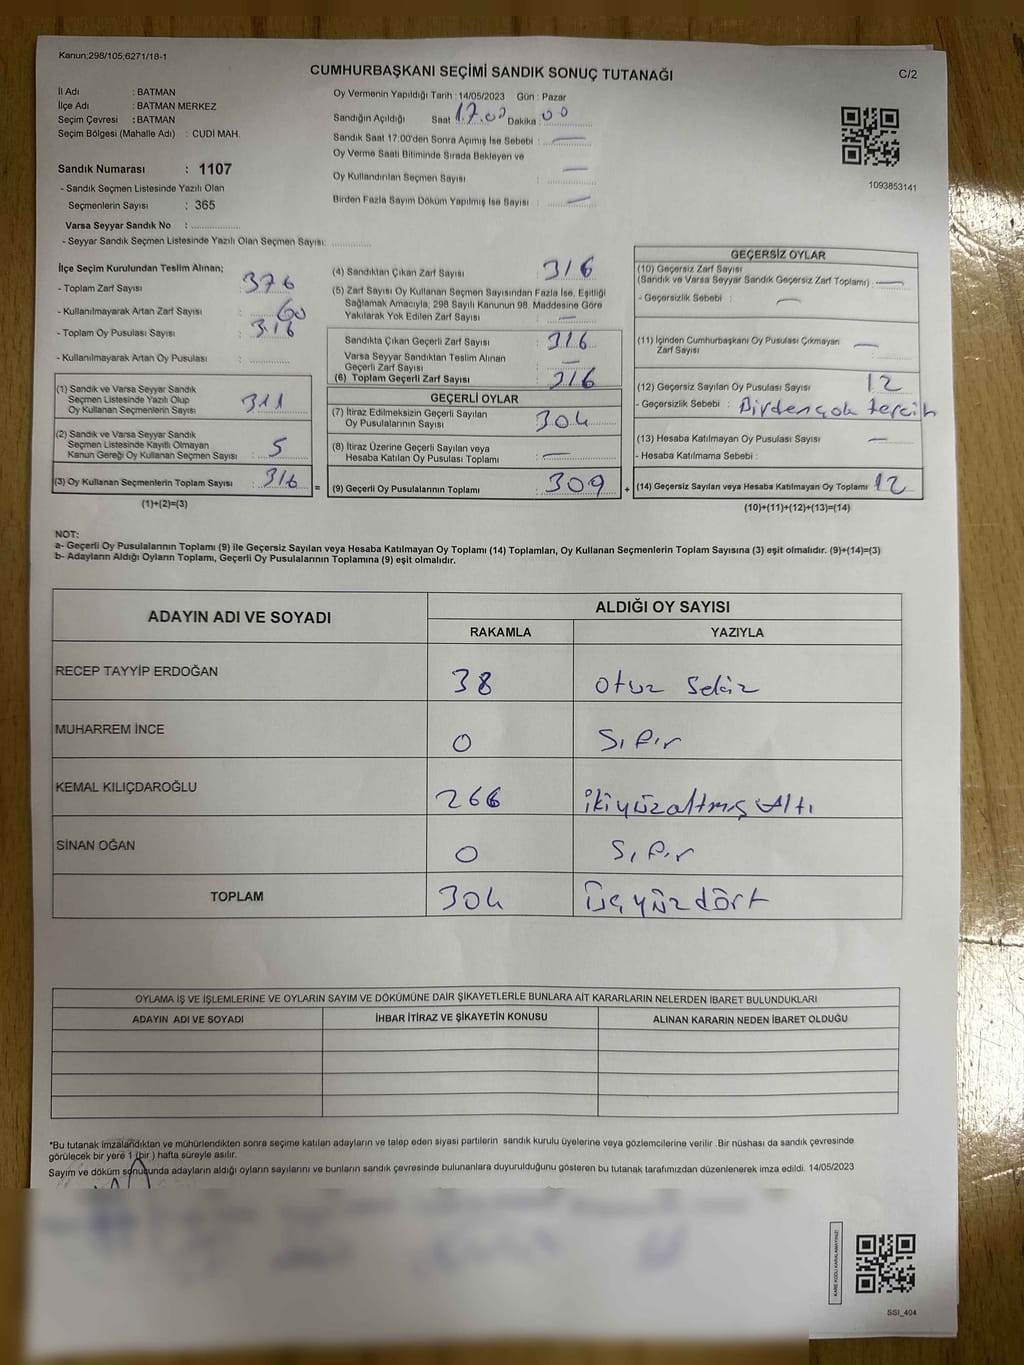 Kanun;298/105;6271/18-1
CUMHURBAŞKANI SEÇİMİ SANDIK SONUÇ TUTANAĞI
C/2
İl Adı : BATMAN
İlçe Adı : BATMAN MERKEZ
Seçim Çevresi : BATMAN
Seçim Bölgesi (Mahalle Adı) : CUDİ MAH.
Sandık Numarası : 1107
- Sandık Seçmen Listesinde Yazılı Olan
Seçmenlerin Sayısı : 365
Varsa Seyyar Sandık No :
- Seyyar Sandık Seçmen Listesinde Yazılı Olan Seçmen Sayısı:
Oy Vermenin Yapıldığı Tarih : 14/05/2023 Gün : Pazar
Sandığın Açıldığı Saat 17.00 Dakika : 00
Sandık Saat 17:00'den Sonra Açımış İse Sebebi : —
Oy Verme Saati Bitiminde Sırada Bekleyen ve
Oy Kullandırılan Seçmen Sayısı : —
Birden Fazla Sayım Döküm Yapılmış İse Sayısı : —
1093853141
İlçe Seçim Kurulundan Teslim Alınan;
- Toplam Zarf Sayısı : 376
- Kullanılmayarak Artan Zarf Sayısı : 60
- Toplam Oy Pusulası Sayısı : 316
- Kullanılmayarak Artan Oy Pusulası :
(1) Sandık ve Varsa Seyyar Sandık
Seçmen Listesinde Yazılı Olup
Oy Kullanan Seçmenlerin Sayısı : 311
(2) Sandık ve Varsa Seyyar Sandık
Seçmen Listesinde Kayıtlı Olmayan
Kanun Gereği Oy Kullanan Seçmen Sayısı : 5
(3) Oy Kullanan Seçmenlerin Toplam Sayısı : 316 =
(1)+(2)=(3)
(4) Sandıktan Çıkan Zarf Sayısı : 316
(5) Zarf Sayısı Oy Kullanan Seçmen Sayısından Fazla İse, Eşitliği
Sağlamak Amacıyla; 298 Sayılı Kanunun 98. Maddesine Göre
Yakılarak Yok Edilen Zarf Sayısı : —
Sandıkta Çıkan Geçerli Zarf Sayısı : 316
Varsa Seyyar Sandıktan Teslim Alınan
Geçerli Zarf Sayısı : —
(6) Toplam Geçerli Zarf Sayısı : 316
GEÇERLİ OYLAR
(7) İtiraz Edilmeksizin Geçerli Sayılan
Oy Pusulalarının Sayısı : 304
(8) İtiraz Üzerine Geçerli Sayılan veya
Hesaba Katılan Oy Pusulası Toplamı : —
(9) Geçerli Oy Pusulalarının Toplamı : 309 +
GEÇERSİZ OYLAR
(10) Geçersiz Zarf Sayısı
(Sandık ve Varsa Seyyar Sandık Geçersiz Zarf Toplamı) : —
- Geçersizlik Sebebi : —
(11) İçinden Cumhurbaşkanı Oy Pusulası Çıkmayan
Zarf Sayısı : —
(12) Geçersiz Sayılan Oy Pusulası Sayısı : 12
- Geçersizlik Sebebi : Birden çok tercih
(13) Hesaba Katılmayan Oy Pusulası Sayısı : —
- Hesaba Katılmama Sebebi :
(14) Geçersiz Sayılan veya Hesaba Katılmayan Oy Toplamı : 12
(10)+(11)+(12)+(13)=(14)
NOT:
a- Geçerli Oy Pusulalarının Toplamı (9) ile Geçersiz Sayılan veya Hesaba Katılmayan Oy Toplamı (14) Toplamları, Oy Kullanan Seçmenlerin Toplam Sayısına (3) eşit olmalıdır. (9)+(14)=(3)
b- Adayların Aldığı Oyların Toplamı, Geçerli Oy Pusulalarının Toplamına (9) eşit olmalıdır.
ADAYIN ADI VE SOYADI
ALDIĞI OY SAYISI
RAKAMLA YAZIYLA
RECEP TAYYİP ERDOĞAN 38 Otuz Sekiz
MUHARREM İNCE 0 Sıfır
KEMAL KILIÇDAROĞLU 266 ikiyüzaltmış Altı
SİNAN OĞAN 0 Sıfır
TOPLAM 304 Üçyüzdört
OYLAMA İŞ VE İŞLEMLERİNE VE OYLARIN SAYIM VE DÖKÜMÜNE DAİR ŞİKAYETLERLE BUNLARA AİT KARARLARIN NELERDEN İBARET BULUNDUKLARI
ADAYIN ADI VE SOYADI İHBAR İTİRAZ VE ŞİKAYETİN KONUSU ALINAN KARARIN NEDEN İBARET OLDUĞU
*Bu tutanak imzalandıktan ve mühürlendikten sonra seçime katılan adayların ve talep eden siyasi partilerin sandık kurulu üyelerine veya gözlemcilerine verilir .Bir nüshası da sandık çevresinde
görülecek bir yere 1 (bir ) hafta süreyle asılır.
Sayım ve döküm sonucunda adayların aldığı oyların sayılarını ve bunların sandık çevresinde bulunanlara duyurulduğunu gösteren bu tutanak tarafımızdan düzenlenerek imza edildi. 14/05/2023
KARE KODU KARALAMAYINIZ!
SSI_404